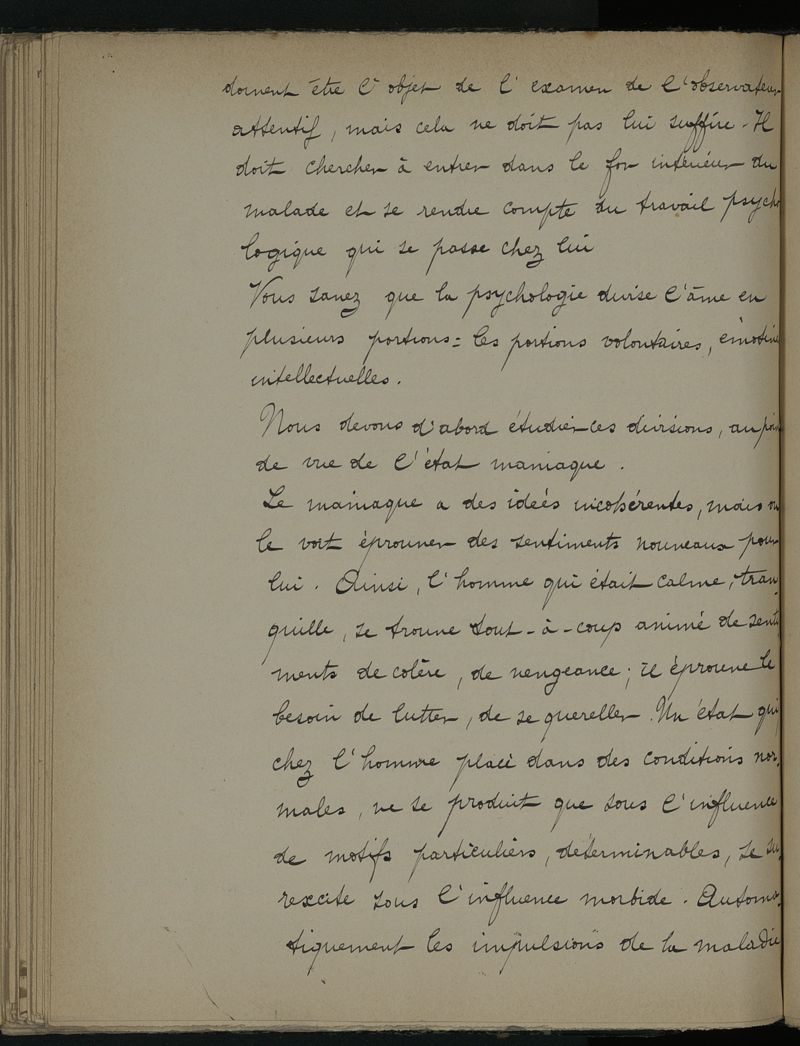 doivent être l'objet de l'examen de l'observateur
attentif, mais cela ne doit pas lui suffire. Il
doit chercher à entrer dans le for intérieur du
malade et se rendre compte du travail psycho
logique qui se passe chez lui
Vous savez que la psychologie divise l'âme en
plusieurs portions : les portions volontaires, émotive
intellectuelles.
Nous devons d'abord étudier ces divisions, au point
de vue de l'état maniaque.
Le maniaque a des idées incohérentes, mais on
le voit éprouver des sentiments nouveaux pour
lui. Ainsi, l'homme qui était calme, tran-
quille, se trouve tout-à-coup animé de senti
ments de colère, de vengeance; il éprouve le
besoin de lutter, de se quereller. Un état qui,
chez l'homme placé dans des conditions nor-
males, ne se produit que sous l'influence
de motifs particuliers, déterminables, se su
rexcite sous l'influence morbide. Automa-
tiquement les impulsions de la maladie